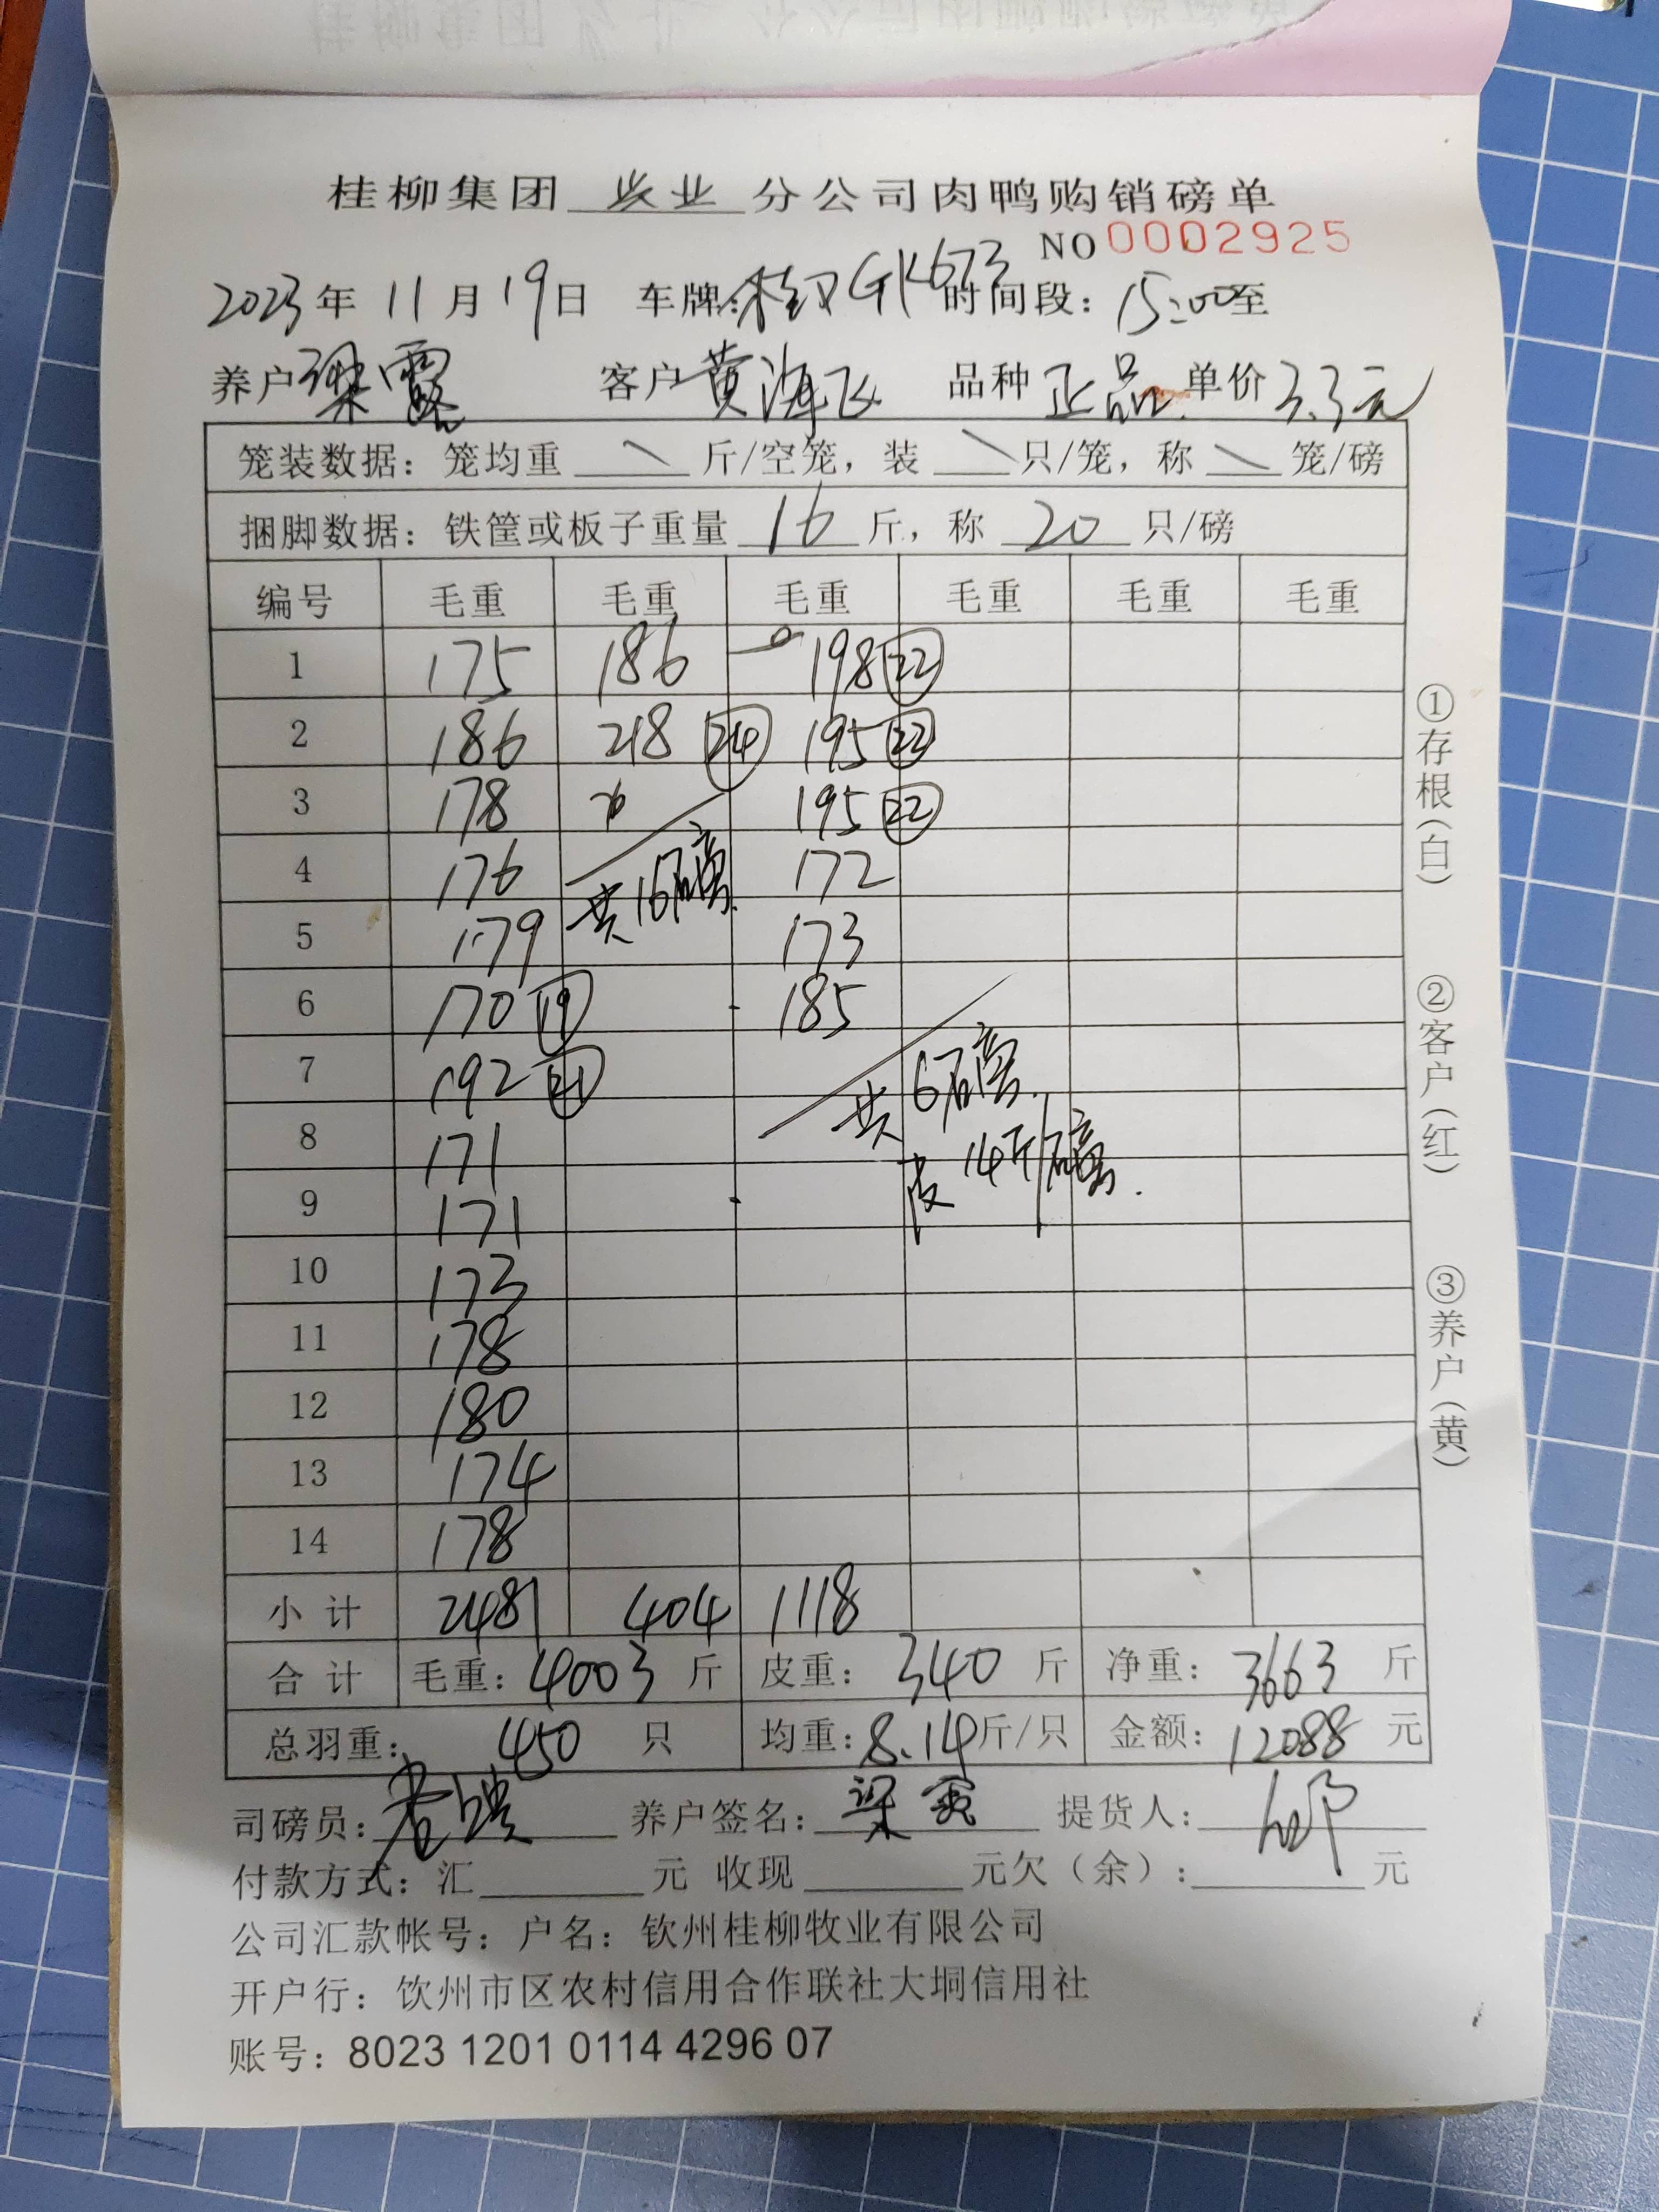 桂柳集团 兴业 分公司肉鸭购销磅单
NO 0002925
2023年 11月 19日 车牌: 桂 GK673 时间段: 15:00至
养户 梁露 客户 黄海飞 品种 正品 单价 3.3元
笼装数据: 笼均重 \ 斤/空笼, 装 \ 只/笼, 称 \ 笼/磅
捆脚数据: 铁筐或板子重量 16 斤, 称 20 只/磅
编号 毛重 毛重 毛重 毛重 毛重 毛重
1 175 186 198 ㉒
2 186 218 ㉔ 195 ㉒
3 178 195 ㉒
4 176 共16磅 172
5 179 173
6 170 ⑲ 185
7 192 ㉑ 共6磅.
8 171 皮 14斤/磅.
9 171
10 173
11 178
12 180
13 174
14 178
小计 2481 404 1118
合计 毛重: 4003 斤 皮重: 340 斤 净重: 3663 斤
总羽重: 450 只 均重: 8.14斤/只 金额: 12088 元
司磅员: 养户签名: 梁露 提货人:
付款方式: 汇 元 收现 元欠(余): 元
公司汇款帐号: 户名: 钦州桂柳牧业有限公司
开户行: 饮州市区农村信用合作联社大垌信用社
账号: 8023 1201 0114 4296 07
①存根(白)
②客户(红)
③养户(黄)